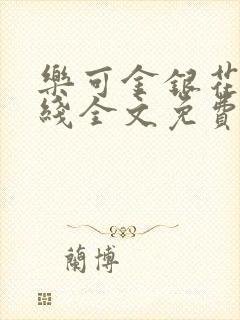 樂可金銀花
綫全文免費
蘭博